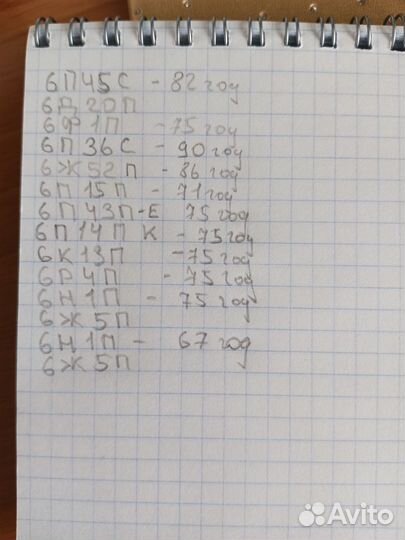 6П45С - 82 год
6Д20П
6Ф1П - 75 год
6П36С - 90 год
6Ж52П - 86 год
6П15П - 71 год
6П43П-Е 75 год
6П14П К - 75 год
6К13П - 75 год
6Р4П - 75 год
6Н1П - 75 год
6Ж5П
6Н1П - 67 год
6Ж5П
Avito